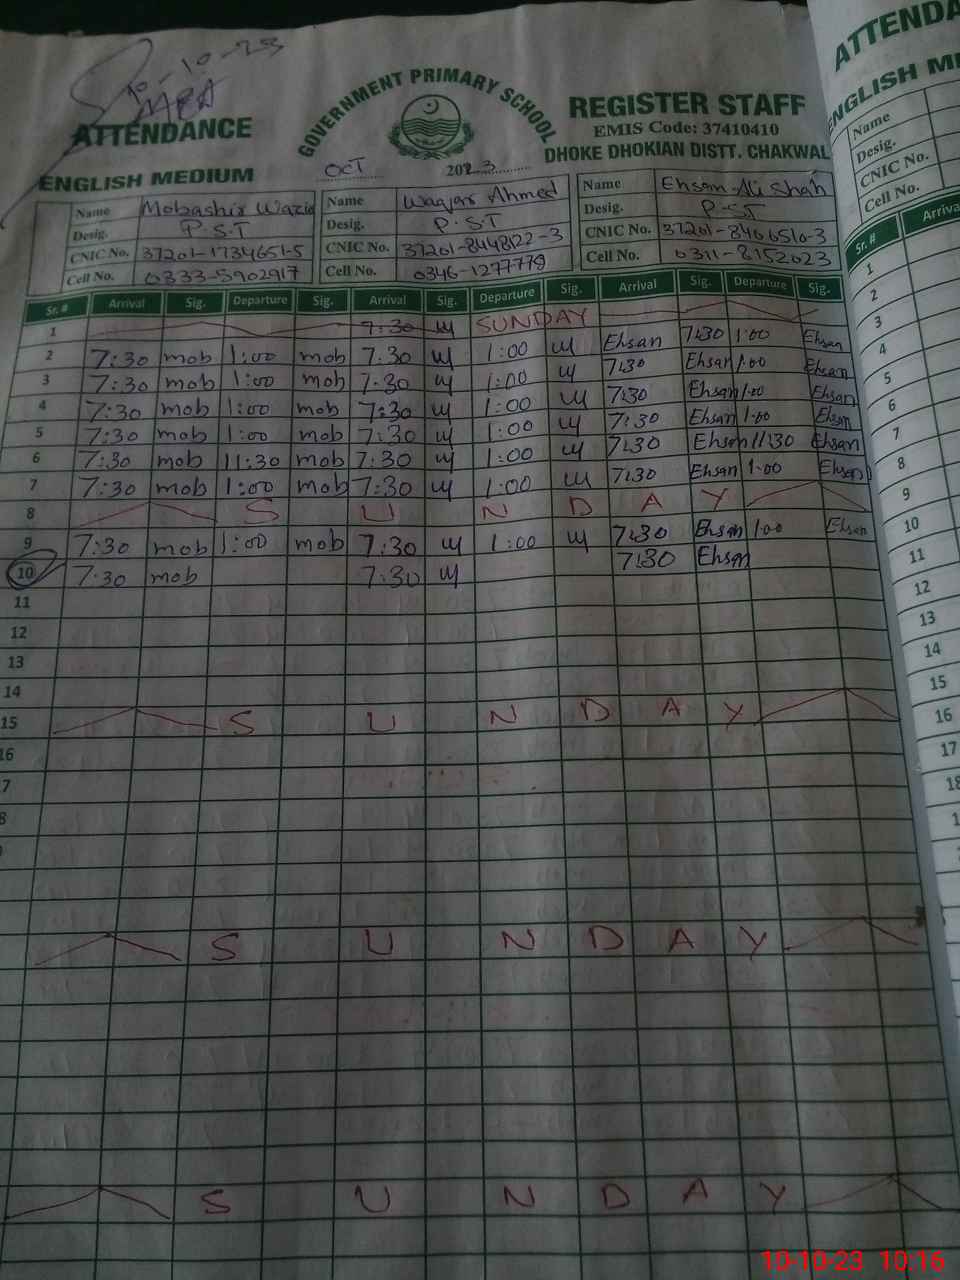 10-10-23
MEA
ATTENDANCE
GOVERNMENT PRIMARY SCHOOL
REGISTER STAFF
EMIS Code: 37410410
ENGLISH MEDIUM
OCT 2023
DHOKE DHOKIAN DISTT. CHAKWAL
Name Mobashir Name Waqar Ahmed Name Ehsan Ali Shah
Desig. P.S.T Desig. P.S.T Desig. P.S.T
CNIC No. 37201-1734651-5 CNIC No. 37201-8448122-3 CNIC No. 37201-8406510-3
Cell No. 0333-5902917 Cell No. 0346-1277779 Cell No. 0311-8152023
Sr. # Arrival Sig. Departure Sig. Arrival Sig. Departure Sig. Arrival Sig. Departure Sig.
1 7:30 SUNDAY
2 7:30 mob 1:00 mob 7:30 1:00 Ehsan 7:30 1:00 Ehsan
3 7:30 mob 1:00 mob 7:30 1:00 7:30 Ehsan 1:00 Ehsan
4 7:30 mob 1:00 mob 7:30 1:00 7:30 Ehsan 1:00 Ehsan
5 7:30 mob 1:00 mob 7:30 1:00 7:30 Ehsan 1:00 Ehsan
6 7:30 mob 11:30 mob 7:30 1:00 7:30 Ehsan 11:30 Ehsan
7 7:30 mob 1:00 mob 7:30 1:00 7:30 Ehsan 1:00 Ehsan
8 S U N D A Y
9 7:30 mob 1:00 mob 7:30 1:00 7:30 Ehsan 1:00 Ehsan
10 7:30 mob 7:30 7:30 Ehsan
11
12
13
14
15 S U N D A Y
16
7
8
S U N D A Y
S U N D A Y
ATTENDA
ENGLISH ME
Name
Desig.
CNIC No.
Cell No.
Sr. # Arriva
1
2
3
4
5
6
7
8
9
10
11
12
13
14
15
16
17
18
10-10-23 10:16